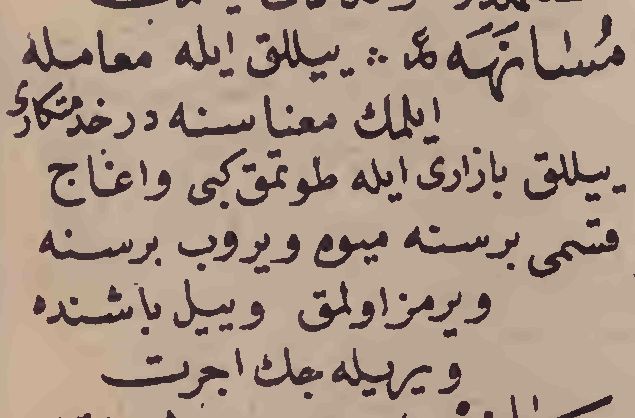 مُسَانَهَه ع ∴ ييللق ايله معامله
ايلمك معناسنه در خدمتكارى
ييللق بازارى ايله طوتمق كبى واغاج
قسمى برسنه ميوه ويروب برسنه
ويرمز اولمق وييل باشنده
ويريله جك اجرت